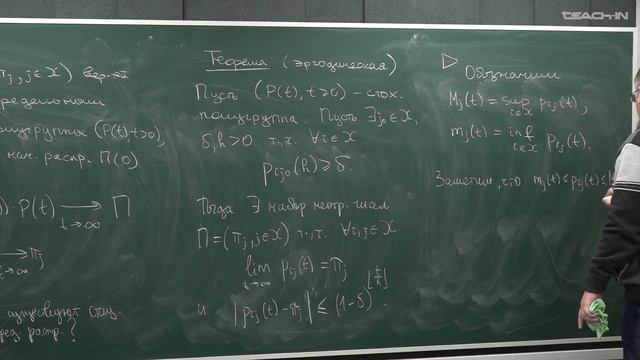 TEACH-IN
π_j, j∈X)
пределении
полугруппы (P(t), t>0)
нач. распр. Π(0)
· P(t) → Π
t→∞
→ π_j
t→∞
существуют стац.
распр.?
Теорема (эргодическая)
Пусть (P(t), t>0) – стох.
полугруппа. Пусть ∃ j₀∈X,
δ, h>0 т.ч. ∀i∈X
p_{ij₀}(h) ≥ δ.
Тогда ∃ набор неотр. чисел
Π = (π_j, j∈X) т.ч. ∀i,j∈X
lim p_{ij}(t) = π_j
t→∞
и |p_{ij}(t) − π_j| ≤ (1−δ)^{⌊t/h⌋}.
▷ Обозначим
M_j(t) = sup p_{ij}(t),
i∈X
m_j(t) = inf p_{ij}(t).
i∈X
Заметим, что m_j(t) ≤ p_{ij}(t) ≤